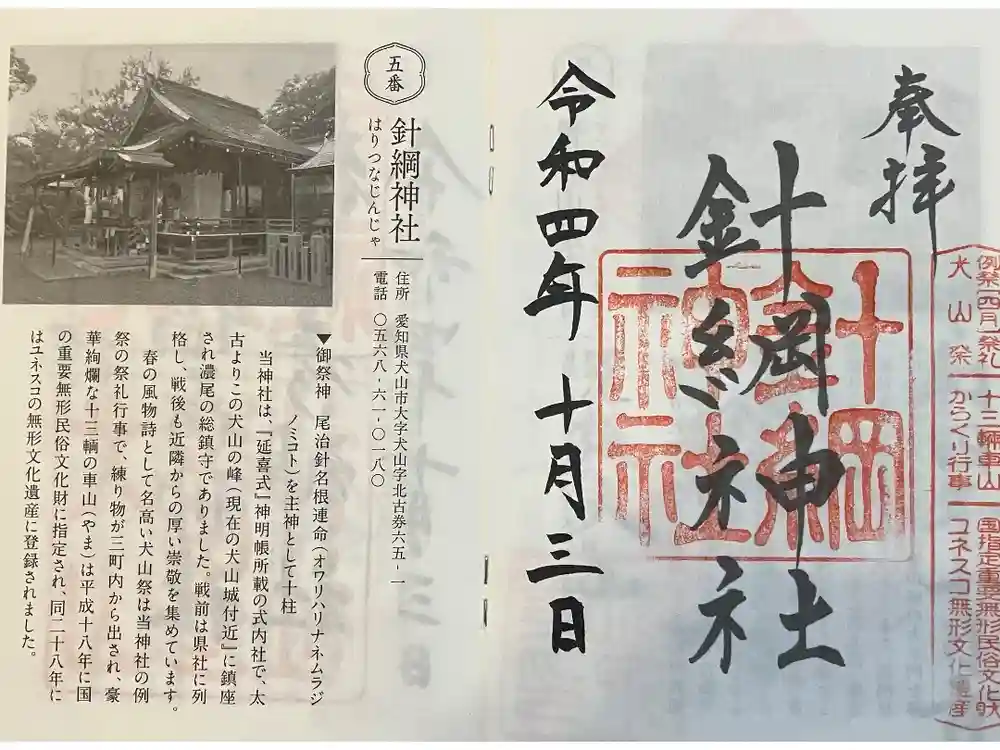 奉拝
針綱神社
令和四年十月三日
針綱神社
例祭(四月)祭礼
犬山祭
十三輌車山
からくり行事
国指定重要無形民俗文化財
ユネスコ無形文化遺産
五番
針綱神社
はりつなじんじゃ
住所 愛知県犬山市大字犬山字北古券六五-一
電話 〇五六八-六一-〇一八〇
▼御祭神 尾治針名根連命(オワリハリナネムラジ
ノミコト)を主神として十柱
当神社は、『延喜式』神明帳所載の式内社で、太
古よりこの犬山の峰(現在の犬山城付近)に鎮座
され濃尾の総鎮守でありました。戦前は県社に列
格し、戦後も近隣からの厚い崇敬を集めています。
春の風物詩として名高い犬山祭は当神社の例
祭の祭礼行事で、練り物が三町内から出され、豪
華絢爛な十三輌の車山(やま)は平成十八年に国
の重要無形民俗文化財に指定され、同二十八年に
はユネスコの無形文化遺産に登録されました。